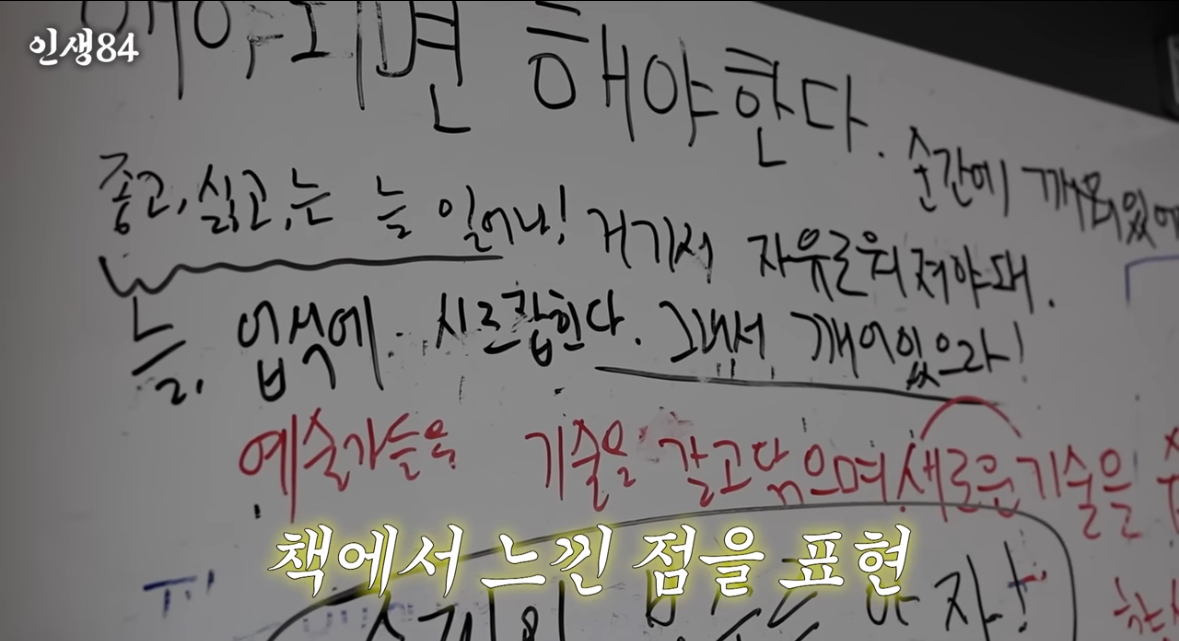 인생84
해야되면 해야한다.
좋고, 싫고,는 늘 일어나! 거기서 자유로워져야돼.
순간에 깨어있
늘. 업식에 사로잡힌다. 그래서 깨어있으라!
예술가들은 기술을 갈고닦으며 새로운 기술을
책에서 느낀 점을 표현
자!